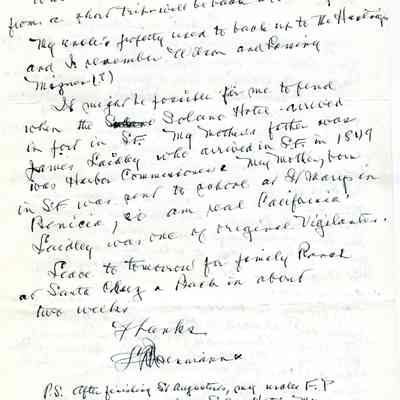 from a short trip will be back
My uncle's property used to back up to the Hastings
and I remember Wilson and Ransing
Mizner (?)
It might be possible for me to find
when the Solano Hotel arrived
in fort in S.F. My Mother's father was
James Laidley who arrived in S.F. in 1849
was Harbor Commissioner My Mother, born
in S.F. was sent to school at St Marys in
Benicia, so am real California.
Laidley was one of original Vigilantes.
Leave to tomorrow for family Ranch
at Santa Cruz & Back in about
two weeks
Thanks
P.S. After finishing St Augustines, my uncle F. P